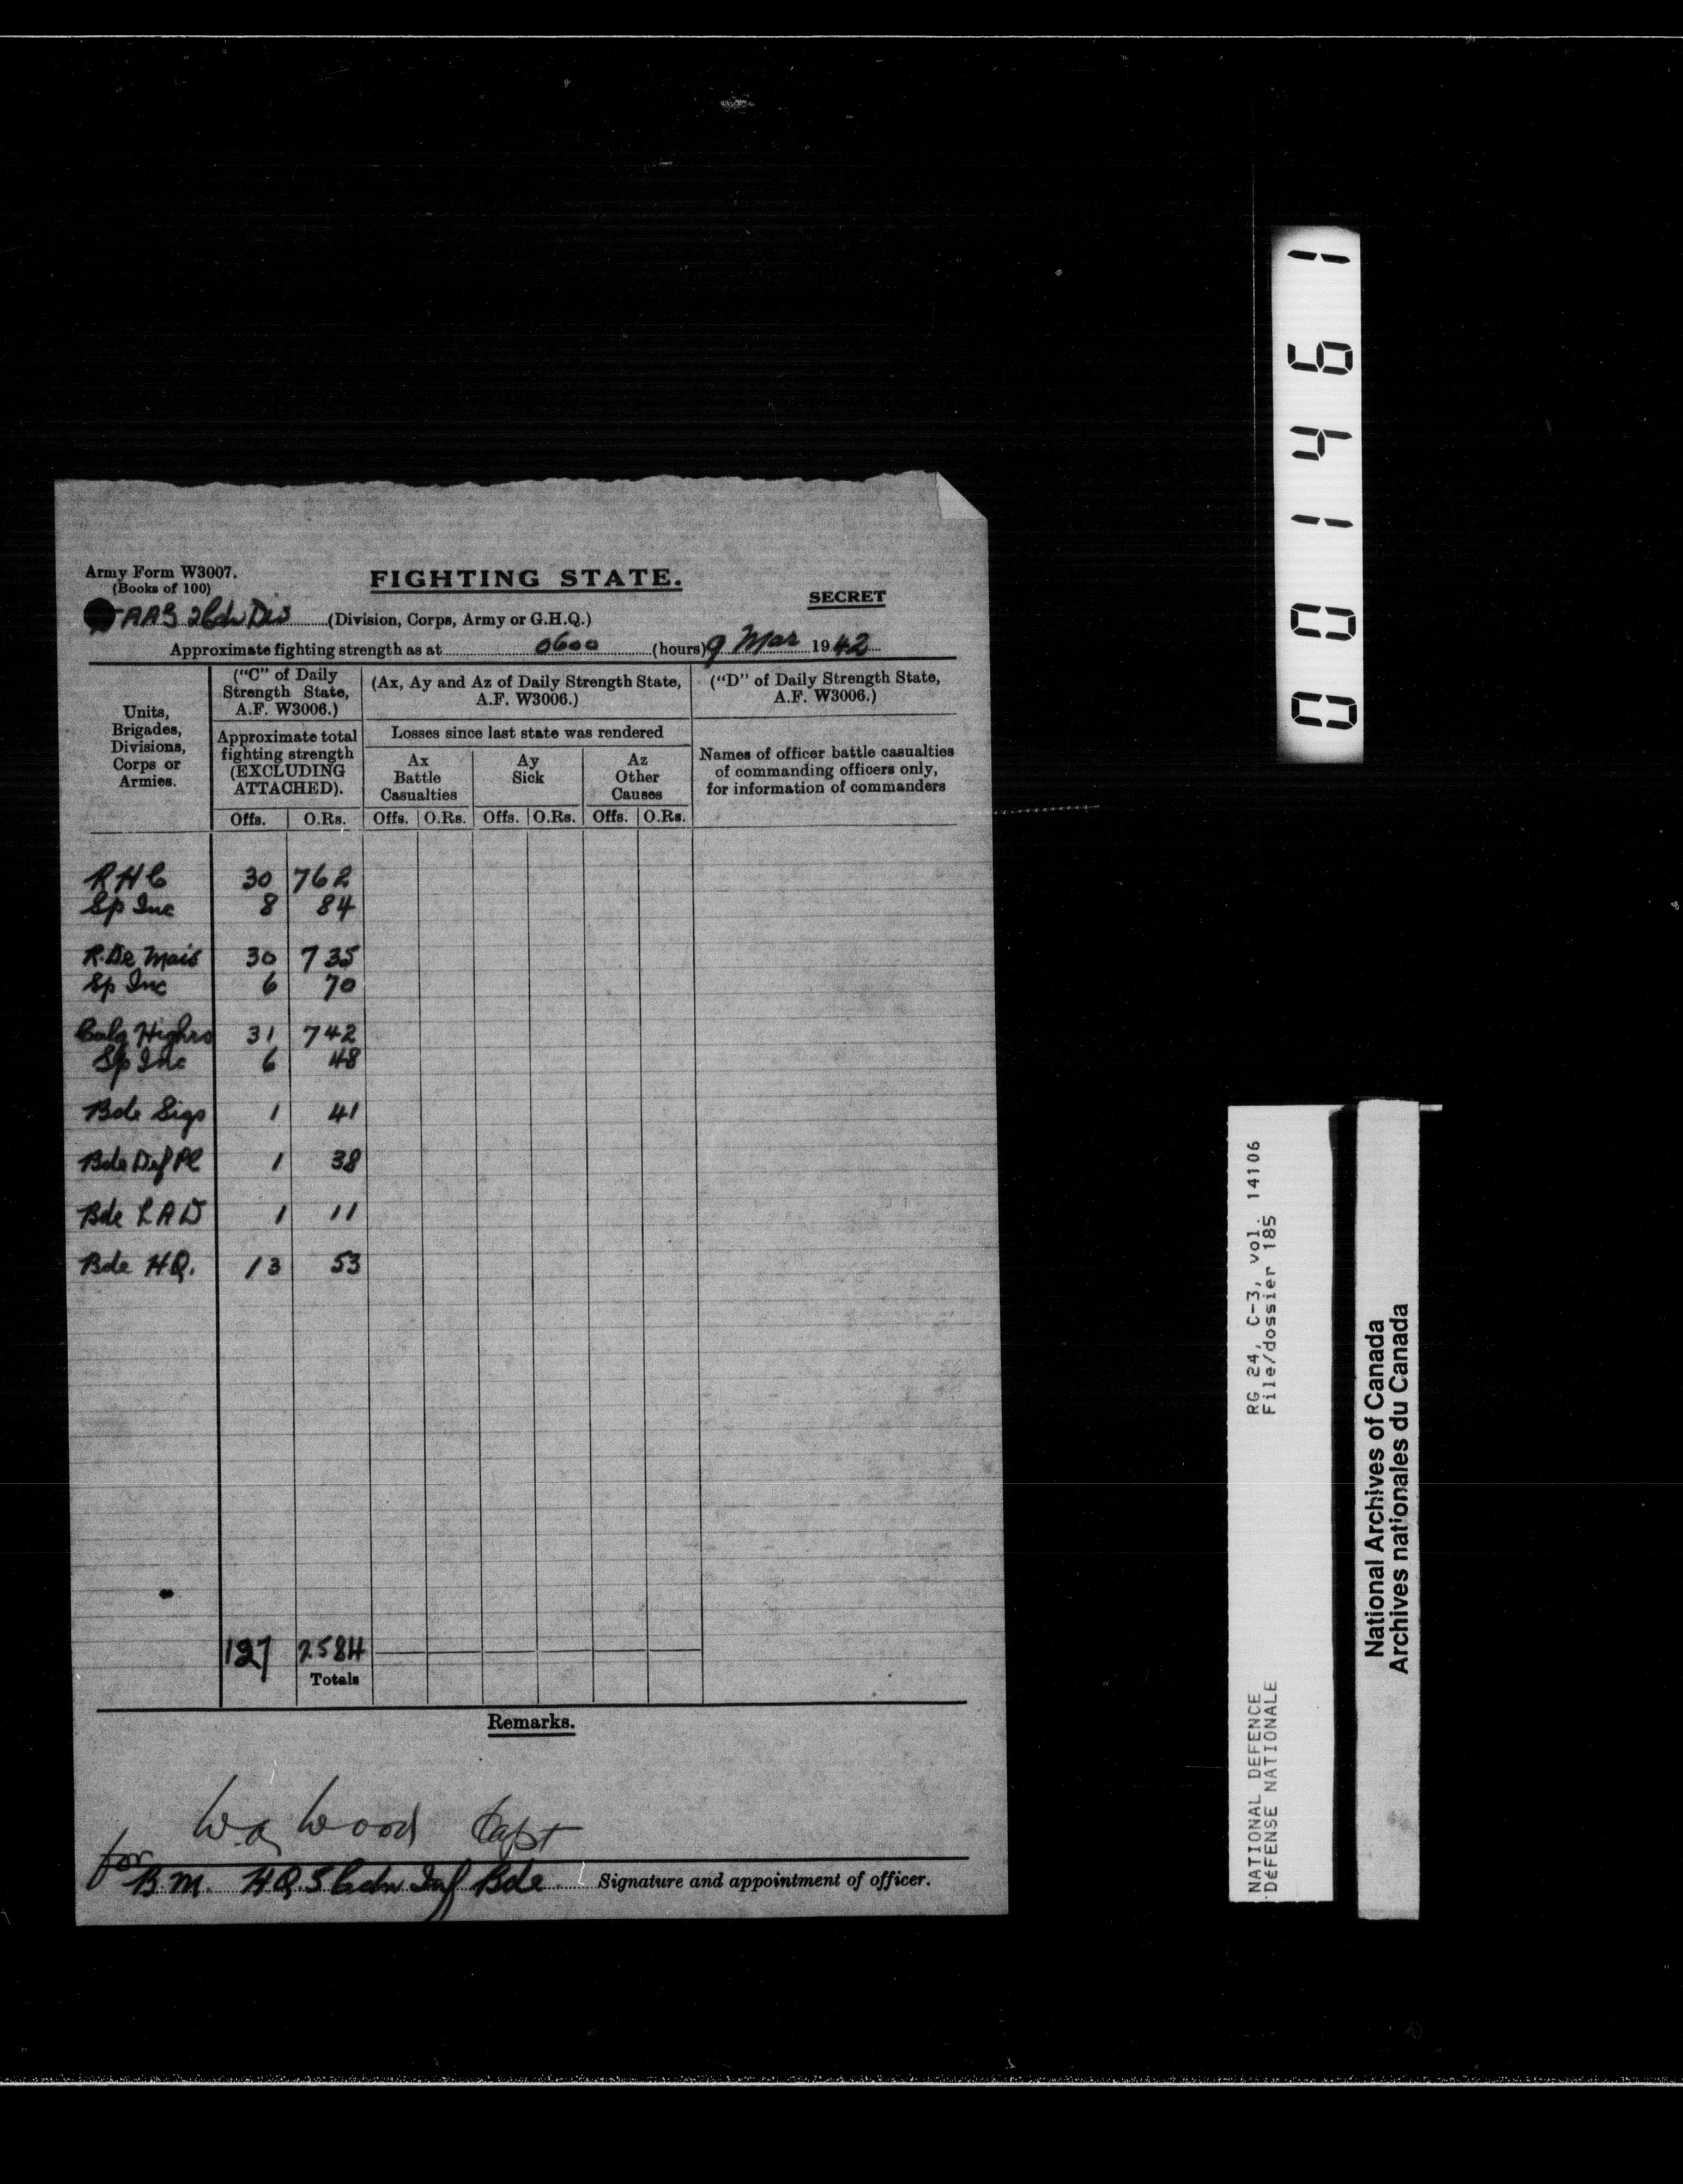 Army Form W3007.
(Books of 100)
FIGHTING STATE.
SECRET
AAG 2 Cdn Div (Division, Corps, Army or G.H.Q.)
Approximate fighting strength as at 0600 (hours) 9 Mar 1942
Units, Brigades, Divisions, Corps or Armies.
("C" of Daily Strength State, A.F. W3006.)
(Ax, Ay and Az of Daily Strength State, A.F. W3006.)
("D" of Daily Strength State, A.F. W3006.)
Approximate total fighting strength (EXCLUDING ATTACHED).
Losses since last state was rendered
Ax Battle Casualties
Ay Sick
Az Other Causes
Names of officer battle casualties of commanding officers only, for information of commanders
Offs. O.Rs. Offs. O.Rs. Offs. O.Rs. Offs. O.Rs.
R H C 30 762
Sp Inc 8 84
R. De Mais 30 735
Sp Inc 6 70
Calg Highrs 31 742
Sp Inc 6 48
Bde Sigs 1 41
Bde Def Pl 1 38
Bde L A D 1 11
Bde H.Q. 13 53
127 2584
Totals
Remarks.
Wood Capt
for B.M. HQ 5 Cdn Inf Bde Signature and appointment of officer.
001461
RG 24, C-3, vol. 14106
File/dossier 185
NATIONAL DEFENCE
DéFENSE NATIONALE
National Archives of Canada
Archives nationales du Canada